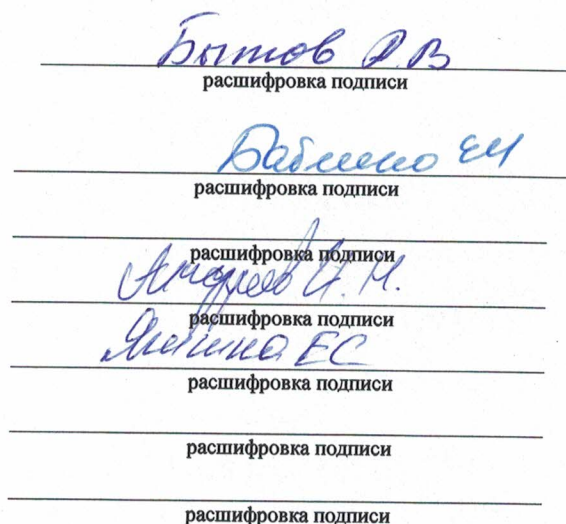 Бытов Р.В
расшифровка подписи
ЕИ
расшифровка подписи
расшифровка подписи
И.Н.
расшифровка подписи
ЕС
расшифровка подписи
расшифровка подписи
расшифровка подписи